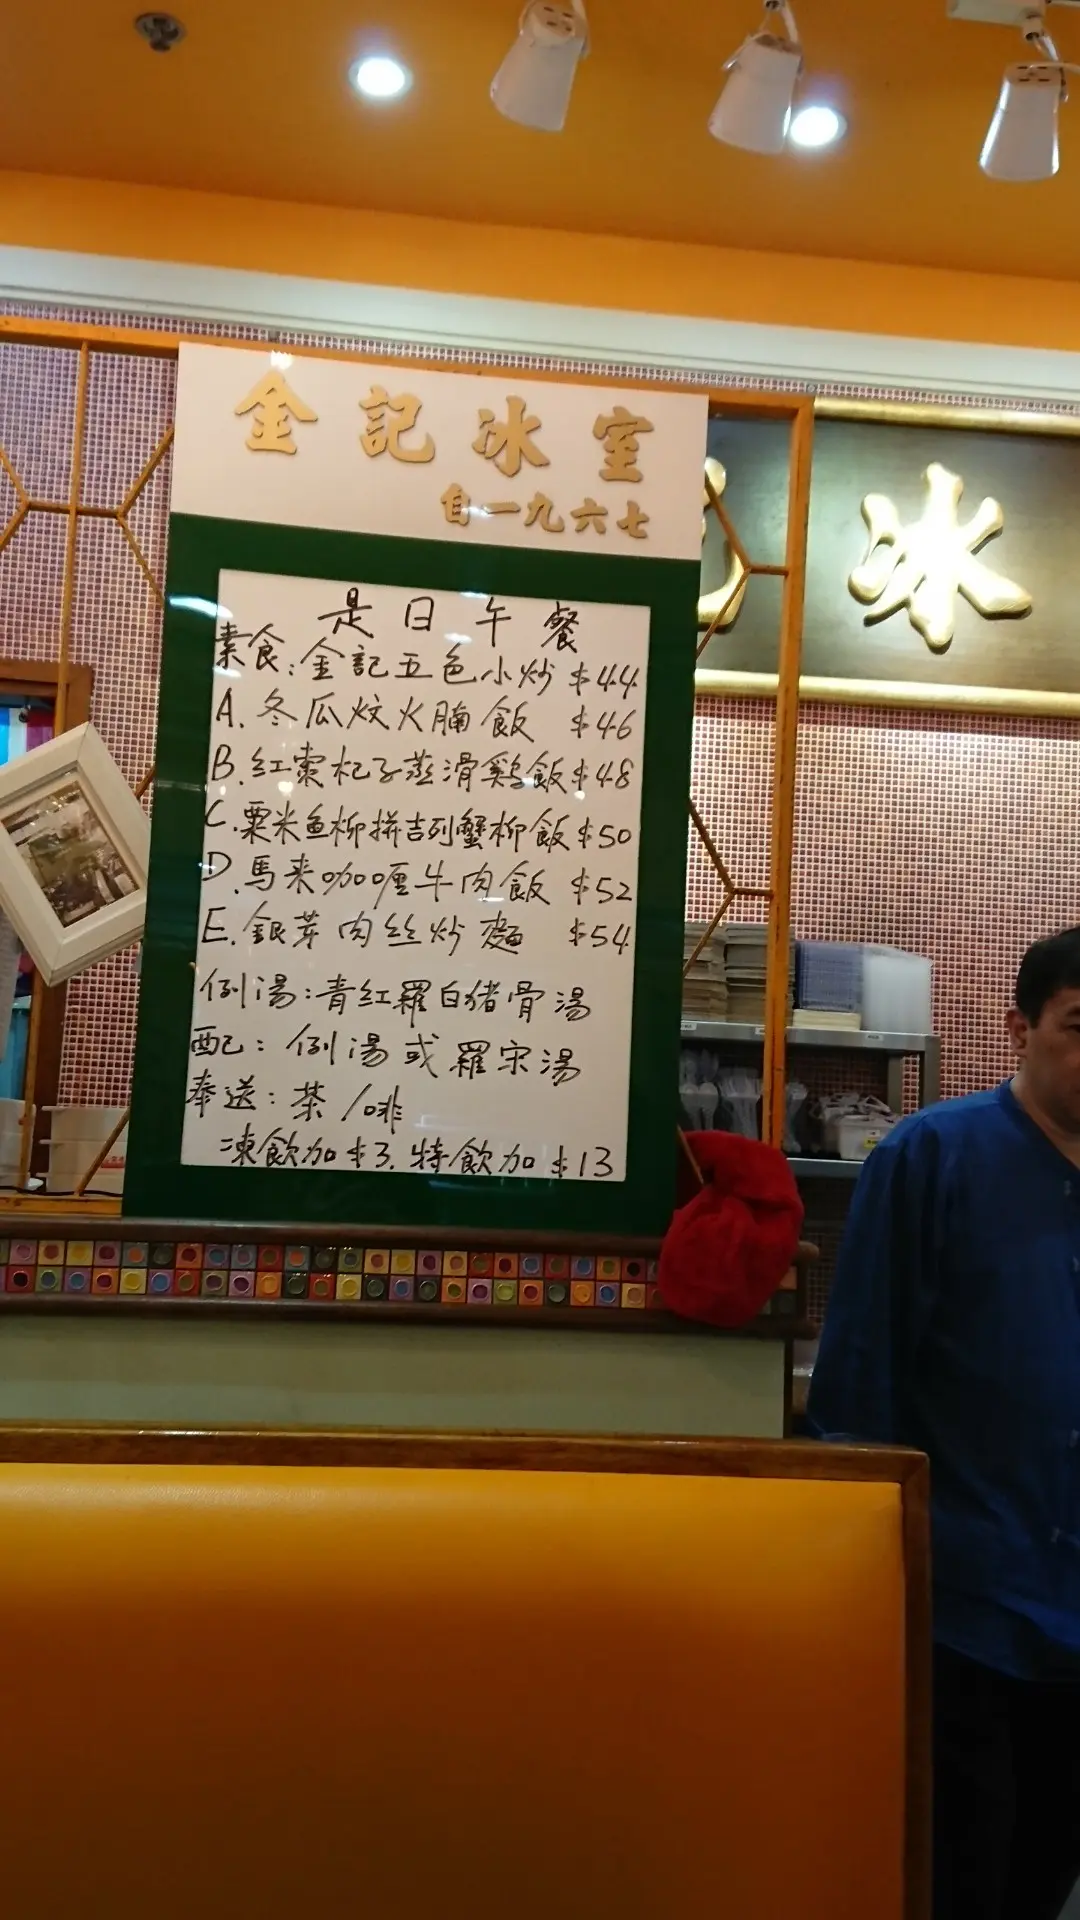 金記冰室
自一九六七
冰
是日午餐
素食:金記五色小炒 $44
A. 冬瓜炆火腩飯 $46
B. 紅棗杞子蒸滑鷄飯 $48
C. 粟米魚柳拼吉列蟹柳飯 $50
D. 馬来咖喱牛肉飯 $52
E. 銀芽肉丝炒麵 $54
例湯:青紅羅白猪骨湯
配:例湯或羅宋湯
奉送:茶/啡
凍飲加$3. 特飲加$13